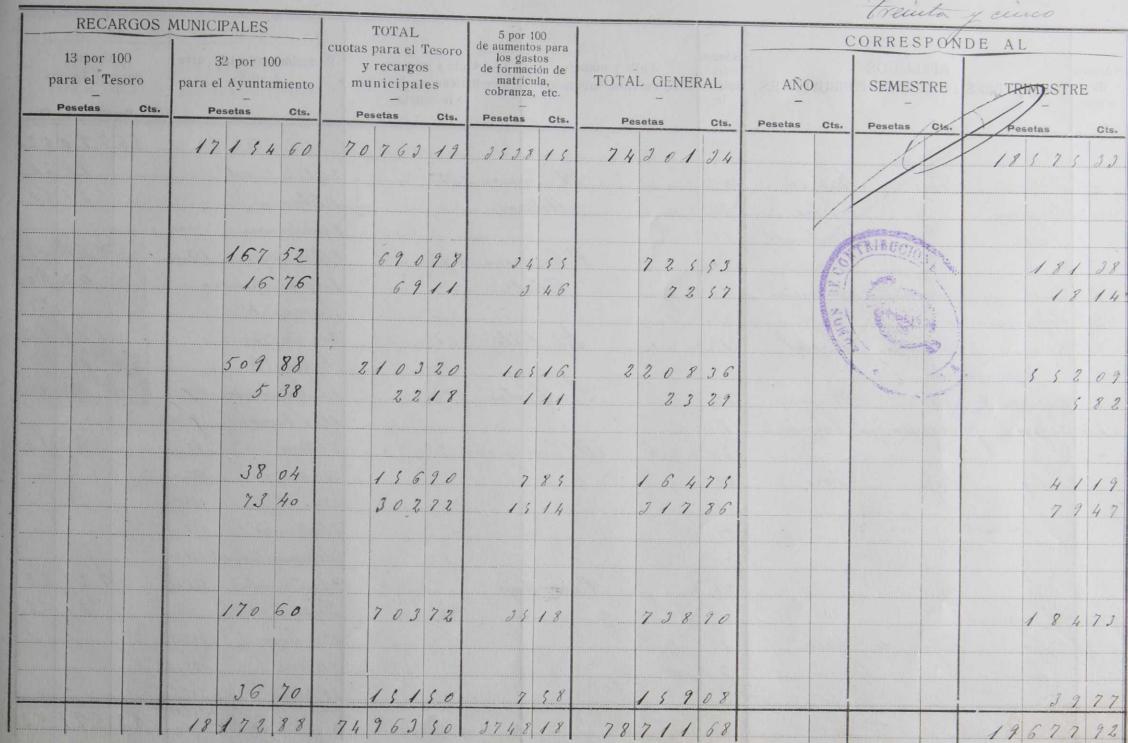 treinta y cinco
RECARGOS MUNICIPALES
13 por 100
para el Tesoro
Pesetas Cts.
32 por 100
para el Ayuntamiento
Pesetas Cts.
TOTAL
cuotas para el Tesoro
y recargos
municipales
Pesetas Cts.
5 por 100
de aumentos para
los gastos
de formación de
matrícula,
cobranza, etc.
TOTAL GENERAL
Pesetas Cts.
CORRESPONDE AL
AÑO
Pesetas Cts.
SEMESTRE
Pesetas Cts.
TRIMESTRE
Pesetas Cts.
17154 60 70763 19 3538 15 74301 34 18575 33
167 52 690 98 34 55 725 53 181 38
16 76 69 11 3 46 72 57 18 14
509 88 2103 20 105 16 2208 36 552 09
5 38 22 18 1 11 23 29 5 82
38 04 156 90 7 85 164 75 41 19
73 40 302 72 15 14 317 86 79 47
170 60 703 72 35 18 738 90 184 73
36 70 151 50 7 58 159 08 39 77
18172 88 74963 50 3748 18 78711 68 19677 92